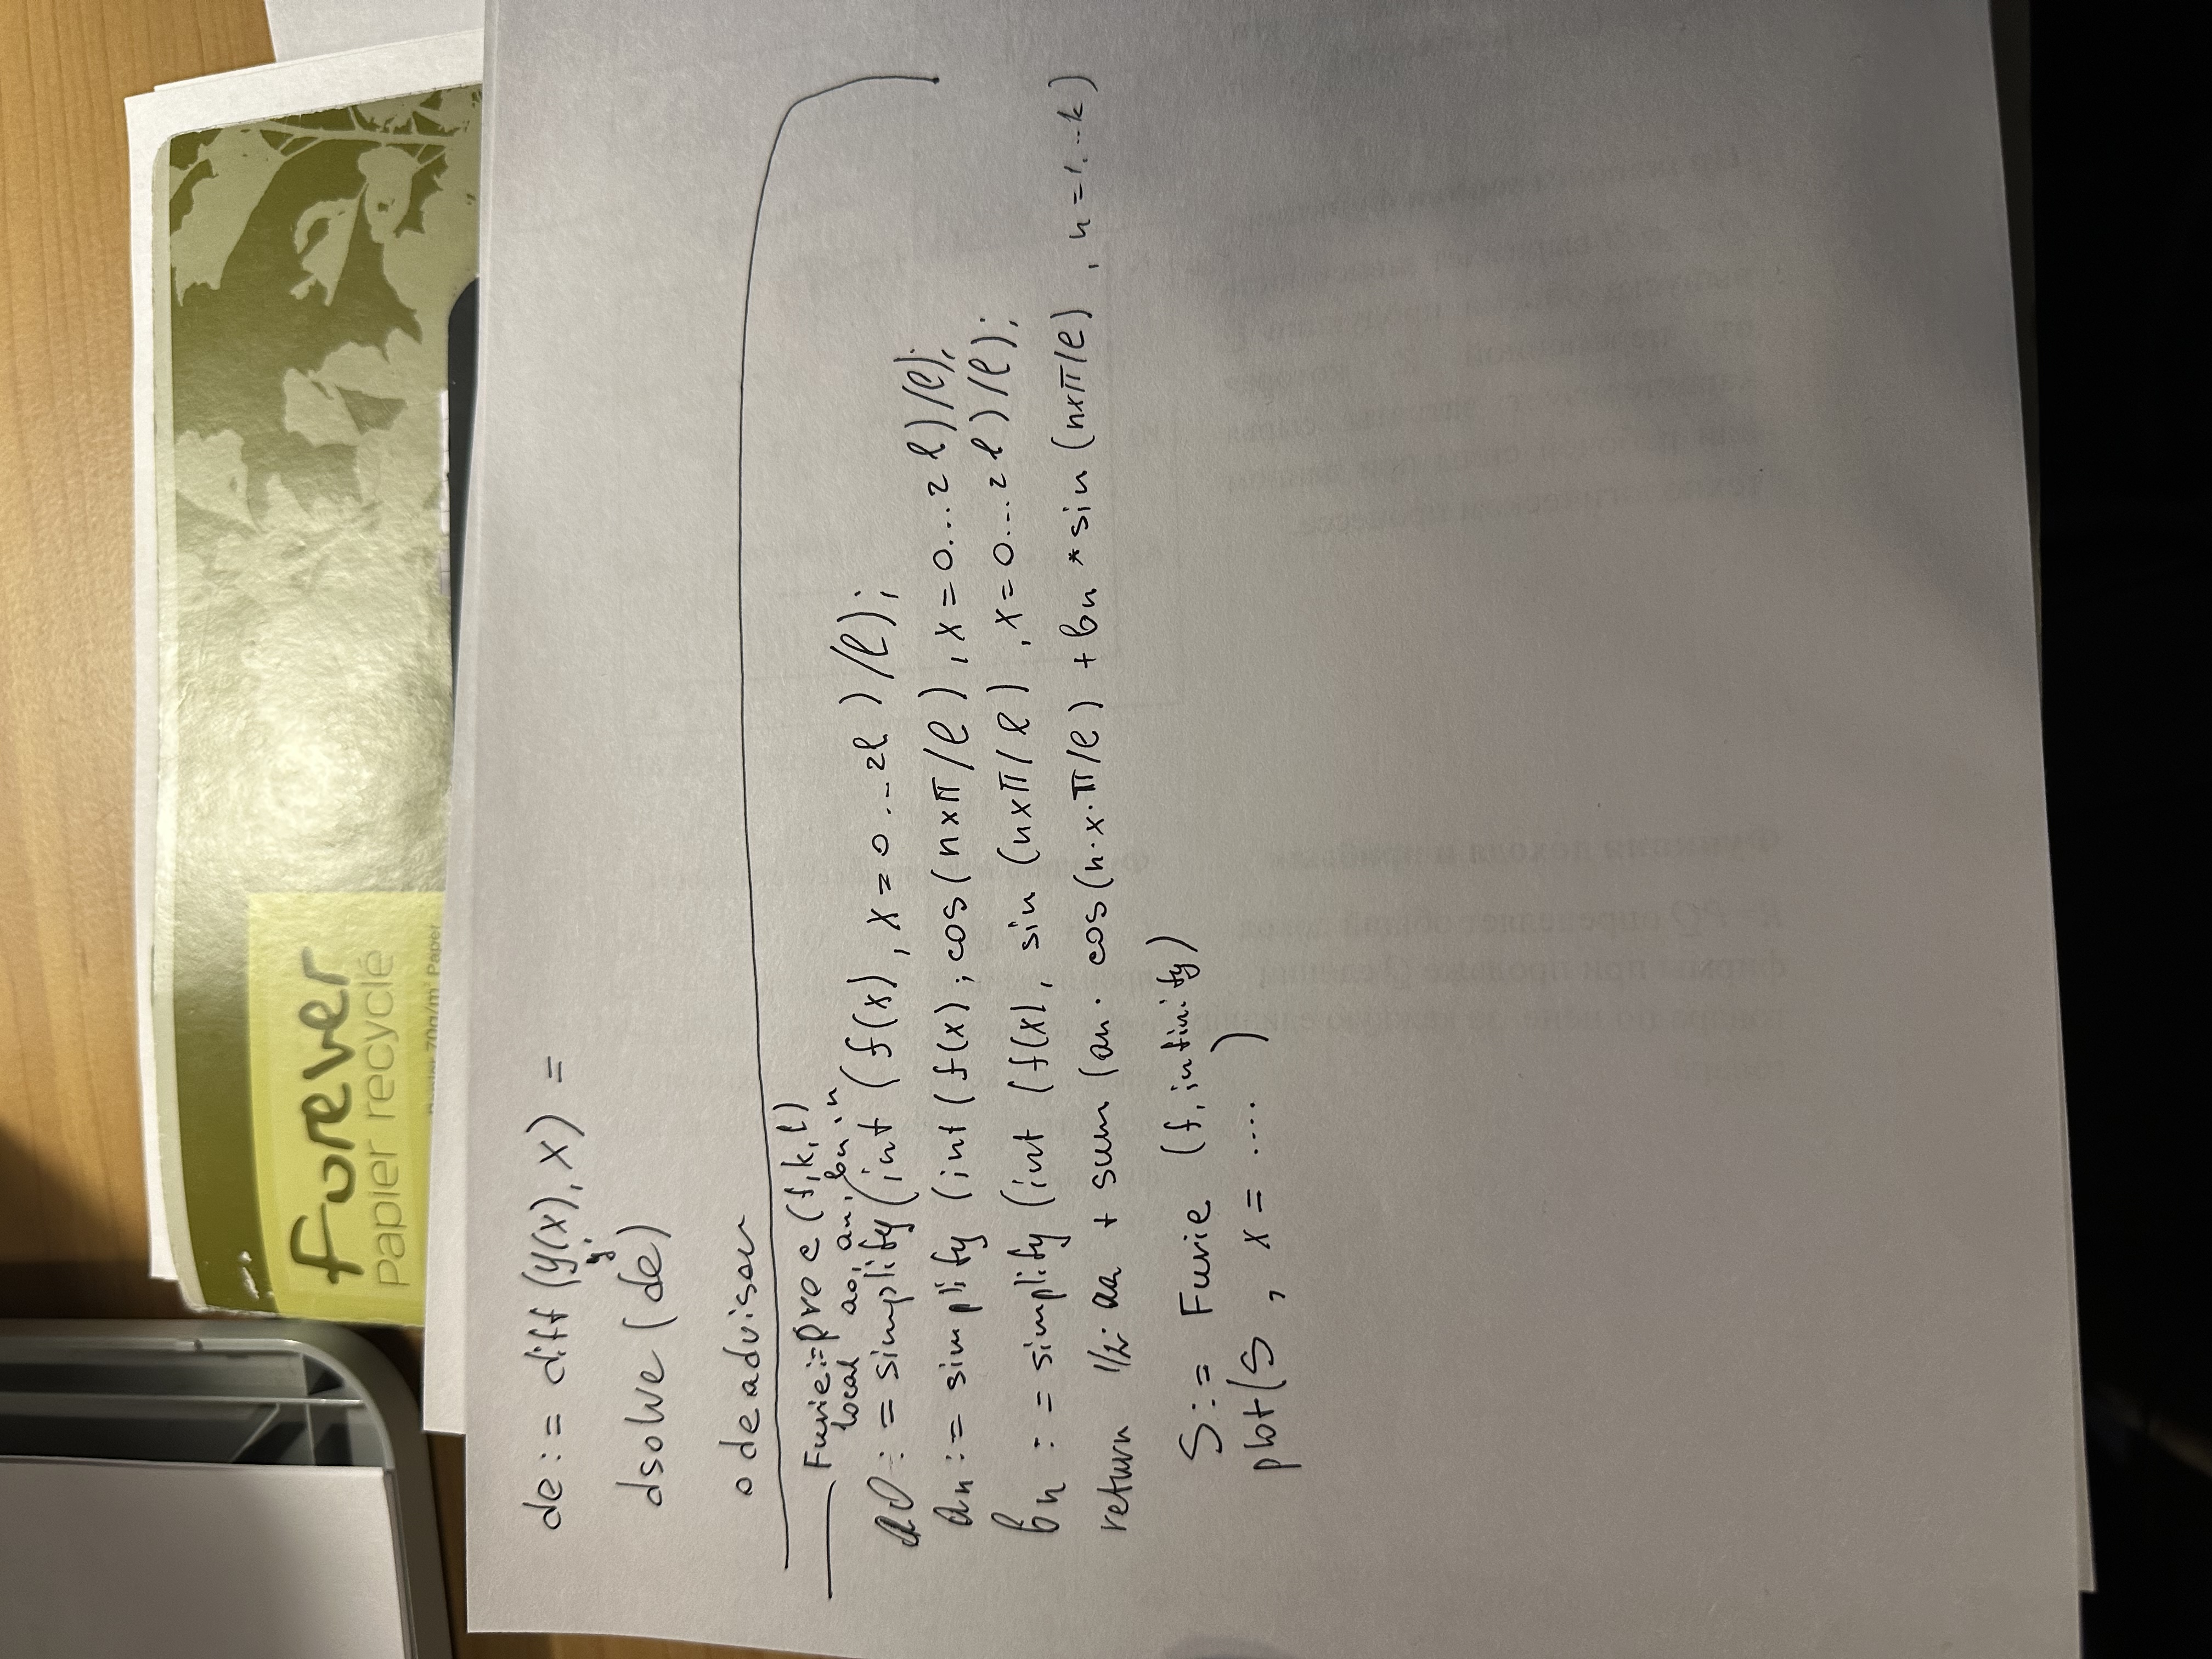 Forever
papier recyclé
Papier 70g/m² Paper
de := diff (y(x), x) =
y'
dsolve (de)
odeadvisor
Furie:=proc (f, k, l)
local a0, an, bn, n
a0 := simplify (int (f(x), x = 0 … 2l ) /l);
an := simplify (int ( f(x) ; cos ( n x π / l ) , x = 0 … 2 l ) /l);
bn := simplify (int ( f(x), sin ( n x π / l ) , x = 0 … 2 l ) /l);
return 1/2· aa + sum (an · cos (n·x·π/l) + bn * sin (n x π/l) , n = 1 … k )
S := Furie (f, infinity)
plot (S , x = .... )